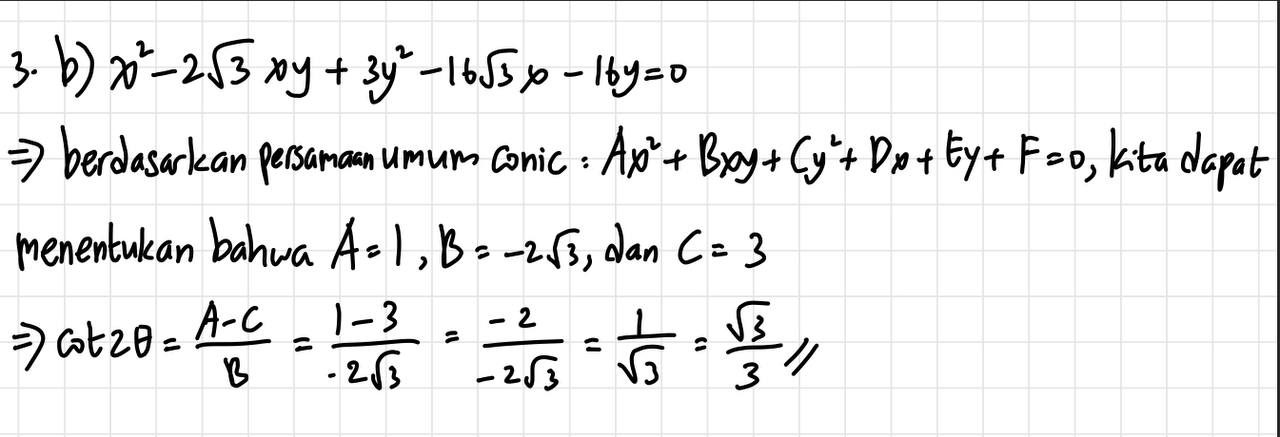 3. b) x² - 2√3 xy + 3y² - 16√3 x - 16y = 0
⇒ berdasarkan persamaan umum conic : Ax² + Bxy + Cy² + Dx + Ey + F = 0, kita dapat
menentukan bahwa A = 1, B = -2√3, dan C = 3
⇒ cot 2θ = (A-C)/B = (1-3)/(-2√3) = (-2)/(-2√3) = 1/√3 = √3/3 //